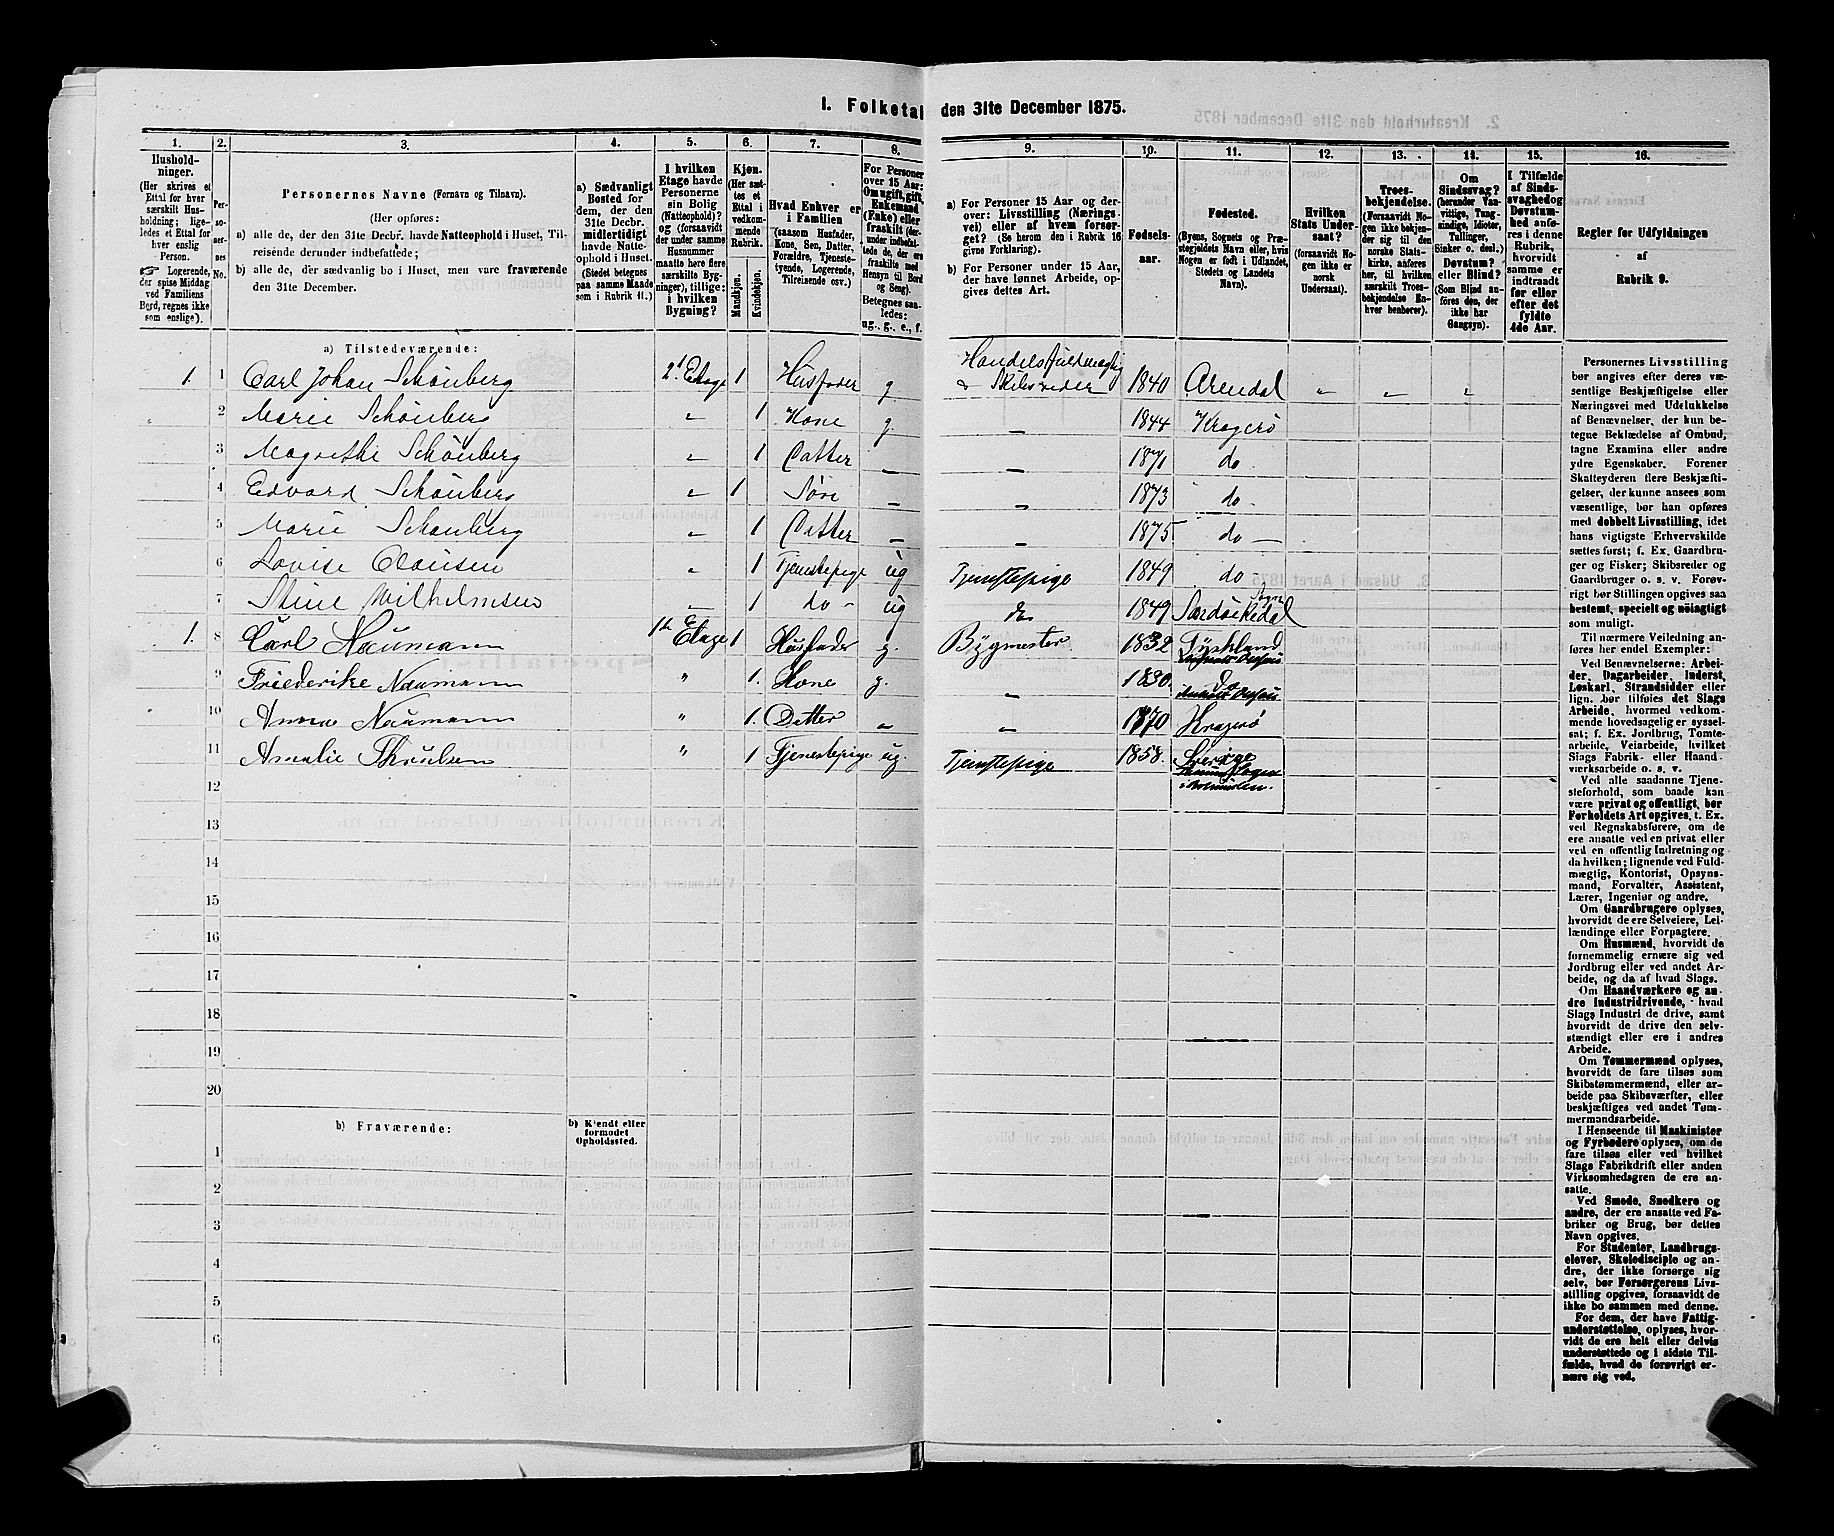 I. Folketal den 31te December 1875.
1. 2. 3. 4. 5. 6. 7. 8. 9. 10. 11. 12. 13. 14. 15. 16.
Hushold-
ninger.
(Her skrives et
Ettal for hver
særskilt Hus-
holdning; lige-
ledes et Ettal for
hver enslig
Person.
☞ Logerende,
der spise Middag
ved Familiens
Bord, regnes ikke
som enslige).
Per-
so-
ner-
nes
No.
Personernes Navne (Fornavn og Tilnavn).
(Her opføres:
a) alle de, der den 31te Decbr. havde Natteophold i Huset, Til-
reisende derunder indbefattede;
b) alle de, der sædvanlig bo i Huset, men vare fraværende
den 31te December.
a) Sædvanligt
Bosted for
dem, der den
31te Decbr.
midlertidigt
havde Natte-
ophold i Huset.
(Stedet betegnes
paa samme Maade
som i Rubrik 11.)
I hvilken
Etage havde
Personerne
sin Bolig
(Natteophold)?
og (forsaavidt
der under samme
Husnummer
maatte høre flere
særskilte Byg-
ninger), tillige:
i hvilken
Bygning?
Kjøn.
(Her sæt-
tes et
Ettal i
vedkom-
mende
Rubrik.
Mandkjøn.
Kvindekjøn.
Hvad Enhver er
i Familien
(saasom Husfader,
Kone, Søn, Datter,
Forældre, Tjeneste-
tyende, Logerende,
Tilreisende osv.)
For Personer
over 15 Aar:
Om ugift, gift,
Enkemand
(Enke) eller
fraskilt (der-
under indbefat-
tede de, der ere
fraskilte med
Hensyn til Bord
og Seng).
Betegnes saa-
ledes:
ug., g., e., f.
a) For Personer 15 Aar og der-
over: Livsstilling (Nærings-
vei) eller af hvem forsør-
get? (Se herom den i Rubrik 16
givne Forklaring).
b) For Personer under 15 Aar,
der have lønnet Arbeide, op-
gives dettes Art.
Fødsels-
aar.
Fødested.
(Byens, Sognets og Præ-
stegjeldets Navn eller, hvis
Nogen er født i Udlandet,
Stedets og Landets
Navn).
Hvilken
Stats Under-
saat?
(forsaavidt No-
gen ikke er
norsk
Undersaat).
Troes-
bekjendelse.
(Forsaavidt No-
gen ikke bekjen-
der sig til den
norske Stats-
kirke, anføres
her, til hvilken
særskilt Troes-
bekjendelse En-
hver henhører).
Om
Sindssvag?
(herunder Van-
vittige, Idioter,
Tullinger,
Sinker o. desl.)
Døvstum?
eller Blind?
(Som Blind an-
føres den, der
ikke har
Gangsyn).
I Tilfælde
af Sinds-
svaghed og
Døvstum-
hed anfø-
res i denne
Rubrik,
hvorvidt
samme er
indtraadt
før eller
efter det
fyldte
4de Aar.
Regler for Udfyldningen
af
Rubrik 9.
a) Tilstedeværende:
1. 1 Carl Johan Schönberg 2. Etage 1 Husfader g Handelsfuldmægtig & Skibsreder 1840 Arendal " " "
2 Marie Schönberg " 1 Kone g. — 1844 Kragerö
3 Magrethe Schönberg " 1 Datter — — 1871 do.
4 Edvard Schönberg " 1 Sön — — 1873 do
5 Marie Schönberg " 1 Datter — — 1875 do —
6 Lovise Clausen " 1 Tjenstepige ug Tjenstepige 1849 do
7 Stine Wilhelmsen — 1 do — ug do 1849 Sogn
1. 8 Carl Naumann 1ste Etage 1 Husfader g. Bygmester 1832 Tyskland
9 Friederike Naumann " 1. Kone g. — 1830. do
10 Anna Naumann " 1. Datter " " 1870 Kragerö
11 Amalie Thrulsen " 1 Tjenestepige ug. Tjenstepige 1858. Sverige
12
13
14
15
16
17
18
19
20
b) Fraværende:
b) Kjendt eller
formodet
Opholdssted.
1
2
3
4
5
6
Personernes Livsstilling
bør angives efter deres væ-
sentlige Beskjæftigelse eller
Næringsvei med Udelukkelse
af Benævnelser, der kun be-
tegne Beklædelse af Ombud,
tagne Examina eller andre
ydre Egenskaber. Forener
Skatteyderen flere Beskjæfti-
gelser, der kunne ansees som
væsentlige, bør han opføres
med dobbelt Livsstilling, idet
hans vigtigste Erhvervskilde
sættes først; f. Ex. Gaardbru-
ger og Fisker; Skibsreder og
Gaardbruger o. s. v. Forøv-
rigt bør Stillingen opgives saa
bestemt, specielt og nöiagtigt
som muligt.
Til nærmere Veiledning an-
føres her endel Exempler:
Ved Benævnelserne: Arbei-
der, Dagarbeider, Inderst,
Løskarl, Strandsidder eller
lign. bør tilføies det Slags
Arbeide, hvormed vedkom-
mende hovedsagelig er syssel-
sat; f. Ex. Jordbrug, Tomte-
arbeide, Veiarbeide, hvilket
Slags Fabrik- eller Haand-
værksarbeide o. s. v.
Ved alle saadanne Tjene-
steforhold, som baade kan
være privat og offentligt, bør
Forholdets Art opgives, t. Ex.
ved Regnskabsførere, om de
ere ansatte ved en privat eller
ved en offentlig Indretning og
da hvilken; lignende ved Fuld-
mægtig, Kontorist, Opsyns-
mand, Forvalter, Assistent,
Lærer, Ingeniør og andre.
Om Gaardbrugere oplyses,
hvorvidt de ere Selveiere, Lei-
lændinge eller Forpagtere.
Om Husmænd, hvorvidt de
fornemmelig ernære sig ved
Jordbrug eller ved andet Ar-
beide, og da af hvad Slags.
Om Haandværkere og an-
dre Industridrivende, hvad
Slags Industri de drive, samt
hvorvidt de drive den selv-
stændigt eller ere i andres
Arbeide.
Om Tømmermænd oplyses,
hvorvidt de fare tilsøs som
Skibstømmermænd, eller ar-
beide paa Skibsværfter, eller
beskjæftiges ved andet Tøm-
mermandsarbeide.
I Henseende til Maskinister
og Fyrbødere oplyses, om de
fare tilsøs eller ved hvilket
Slags Fabrikdrift eller anden
Virksomhedsgren de ere an-
satte.
Ved Smede, Snedkere og
andre, der ere ansatte ved Fa-
briker og Brug, bør dettes
Navn opgives.
For Studenter, Landbrugs-
elever, Skoledisciple og an-
dre, der ikke forsørge sig
selv, bør Forsørgerens Livs-
stilling opgives, forsaavidt de
ikke bo sammen med denne.
For dem, der have Fattig-
understøttelse, oplyses, hvor-
vidt de ere helt eller delvis
understøttede og i sidste Til-
fælde, hvad de forøvrigt er-
nære sig ved.